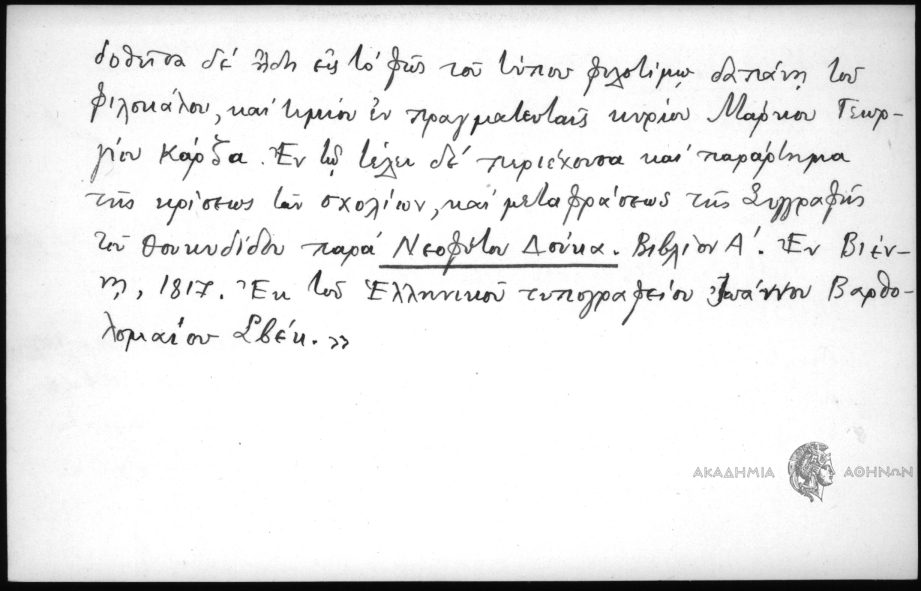 δοθεῖσα δέ ἤδη εἰς τό φῶς τοῦ τύπου φιλοτίμῳ δαπάνῃ τοῦ
φιλοκάλου, καί τιμίου ἐν πραγματευταῖς κυρίου Μάρκου Γεωρ-
γίου Κάρζα. Ἐν τῷ τέλει δέ περιέχουσα καί παράρτημα
τῆς κρίσεως τῶν σχολίων, καί μεταφράσεως τῆς Συγγραφῆς
τοῦ Θουκυδίδου παρά Νεοφύτου Δούκα. Βιβλίον Α΄. Ἐν Βιέν-
νῃ, 1817. Ἐκ τοῦ Ἑλληνικοῦ τυπογραφείου Ἰωάννου Βαρθο-
λομαίου Σβέκ.»
ΑΚΑΔΗΜΙΑ ΑΘΗΝΩΝ